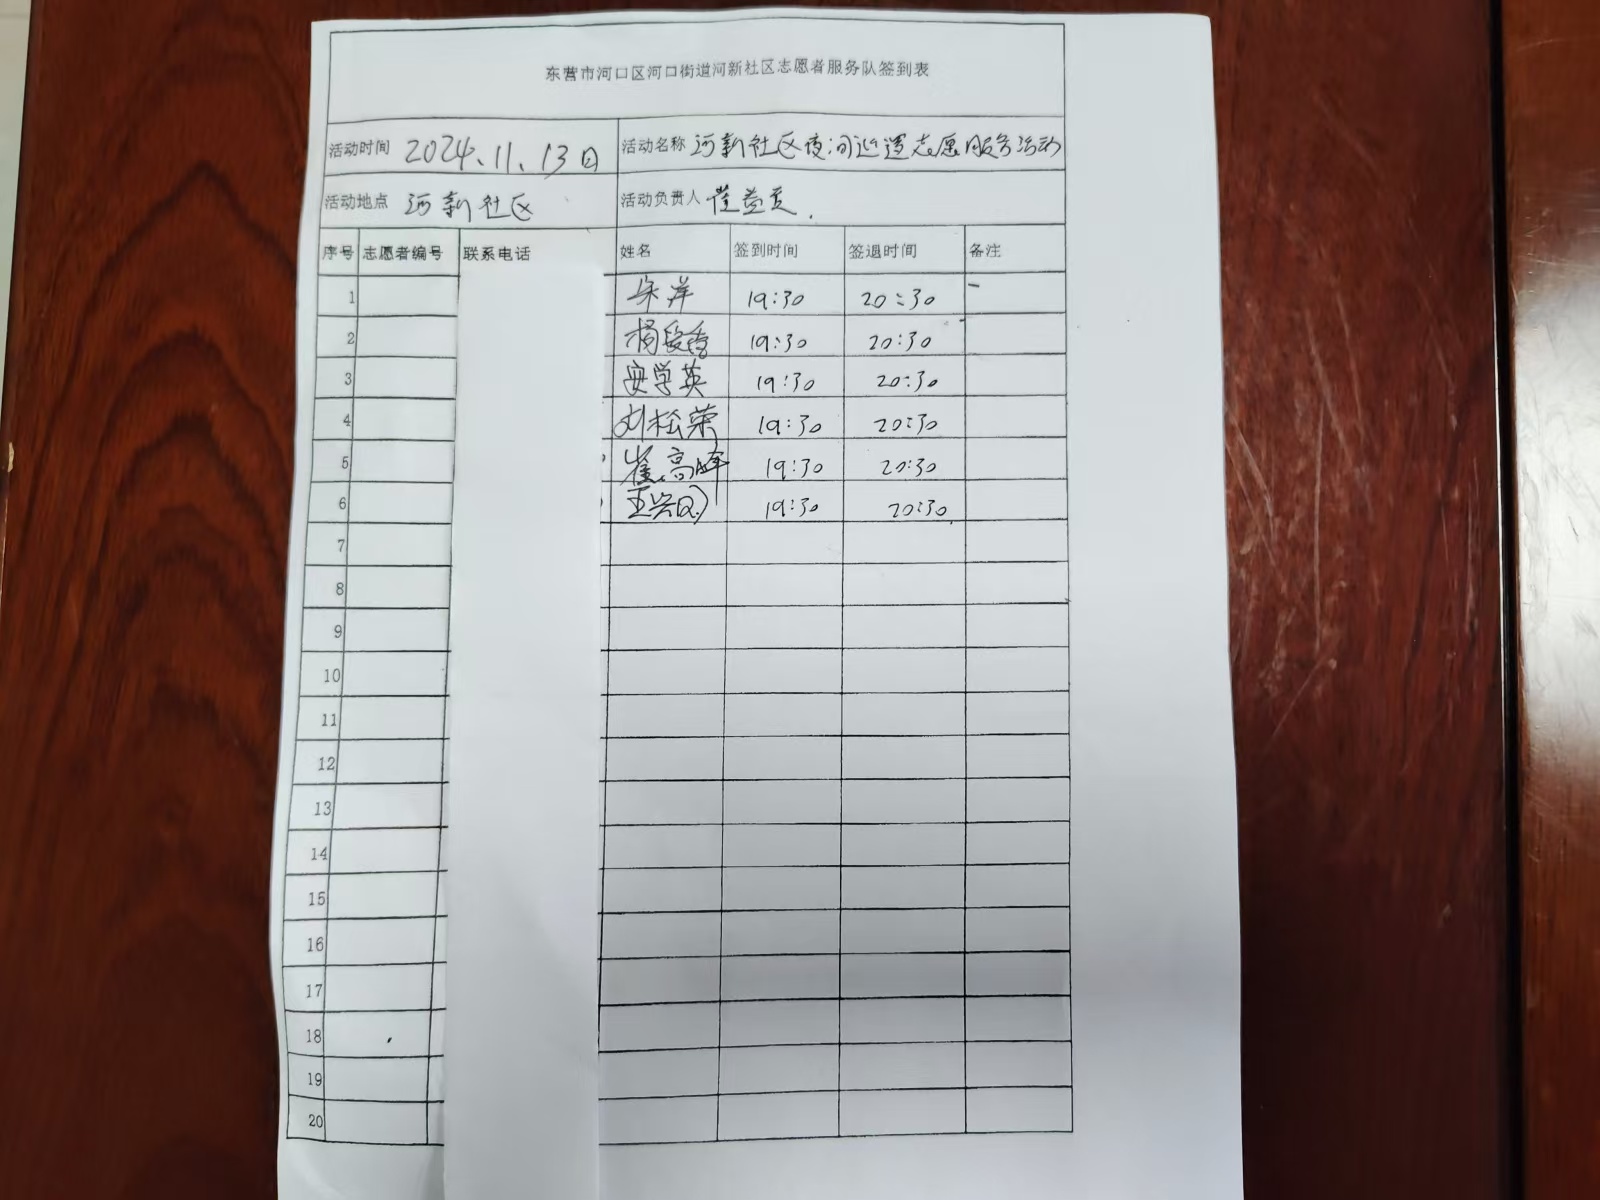 东营市河口区河口街道河新社区志愿者服务队签到表
活动时间 2024.11.13日 活动名称 河新社区夜间巡逻志愿服务活动
活动地点 河新社区 活动负责人 崔益
序号 志愿者编号 联系电话 姓名 签到时间 签退时间 备注
1 朱萍 19:30 20:30
2 杨 19:30 20:30
3 安学英 19:30 20:30
4 刘松荣 19:30 20:30
5 崔高峰 19:30 20:30
6 王兴 19:30 20:30
7
8
9
10
11
12
13
14
15
16
17
18
19
20